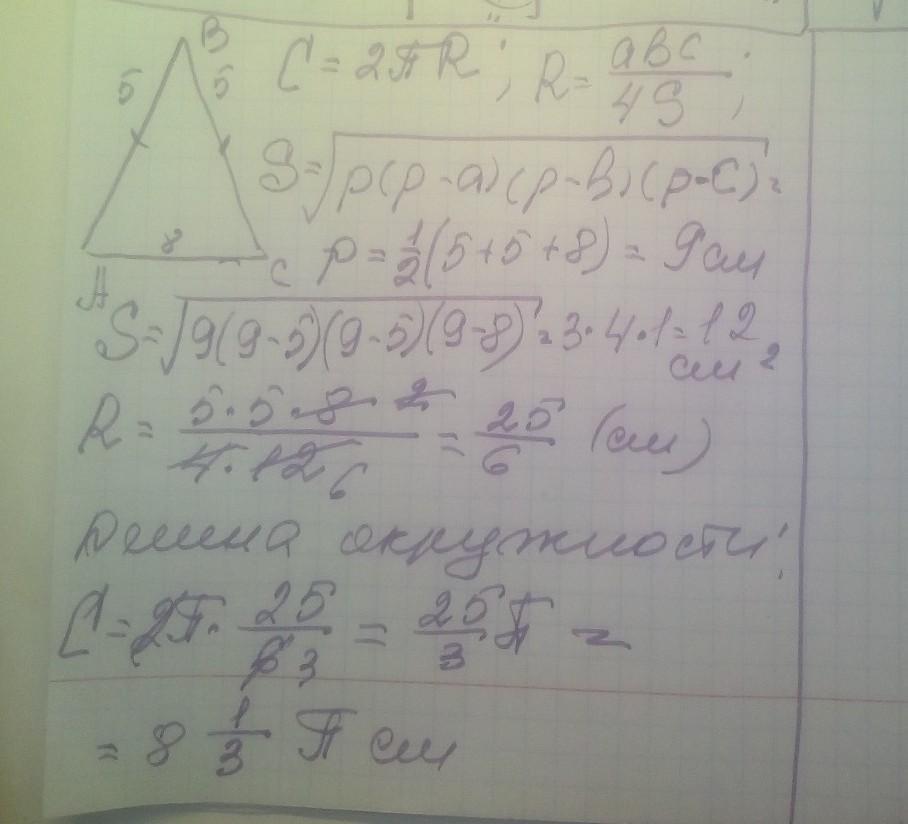 B
5 5
A 8 C
C = 2πR; R = abc/4S;
S = √p(p-a)(p-b)(p-c) =
p = 1/2(5+5+8) = 9 см
S = √9(9-5)(9-5)(9-8) = 3·4·1 = 12 см²
R = 5·5·8 2/4·12 6 = 25/6 (см)
Длина окружности:
C = 2π · 25/6 3 = 25/3 π =
= 8 1/3 π см